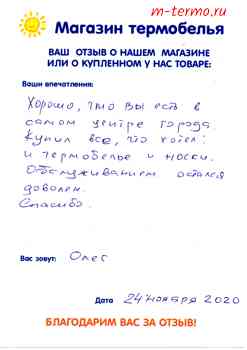 m-termo.ru
Магазин термобелья
ВАШ ОТЗЫВ О НАШЕМ МАГАЗИНЕ
ИЛИ О КУПЛЕННОМ У НАС ТОВАРЕ:
Ваши впечатления:
Хорошо, что вы есть в
самом центре города
Купил все, что хотел:
и термобелье и носки.
Обслуживанием остался
доволен.
Спасибо.
Вас зовут: Олег
Дата 24 ноября 2020
БЛАГОДАРИМ ВАС ЗА ОТЗЫВ!